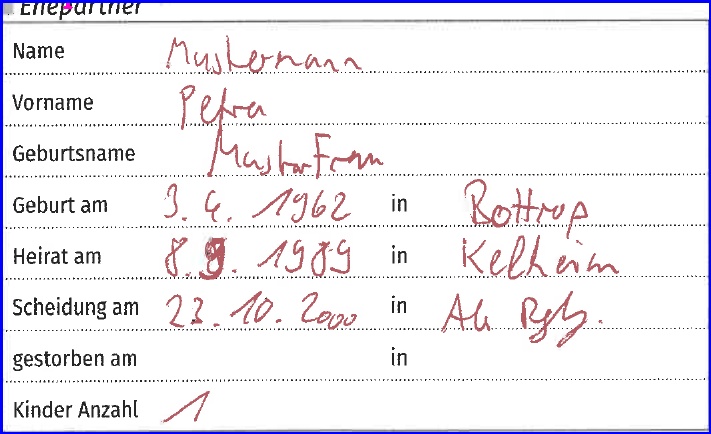 Ehepartner
Name Mustermann
Vorname Petra
Geburtsname MusterFrau
Geburt am 3. 4. 1962 in Bottrop
Heirat am 8. 9. 1989 in Kelheim
Scheidung am 23. 10. 2000 in Rgbg.
gestorben am in
Kinder Anzahl 1